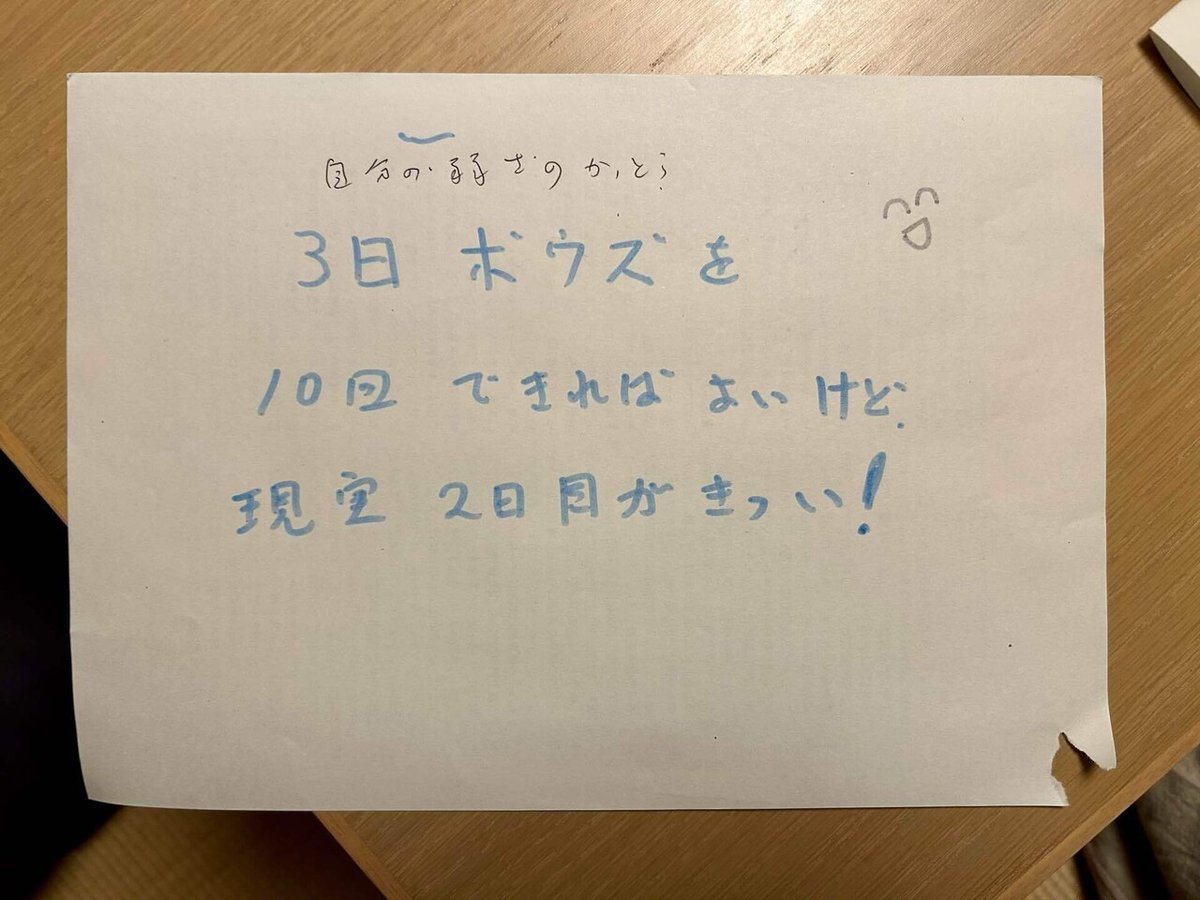 自分の弱さのかっとう
3日 ボウズを
10回 できれば よいけど
現実 2日目が きつい!